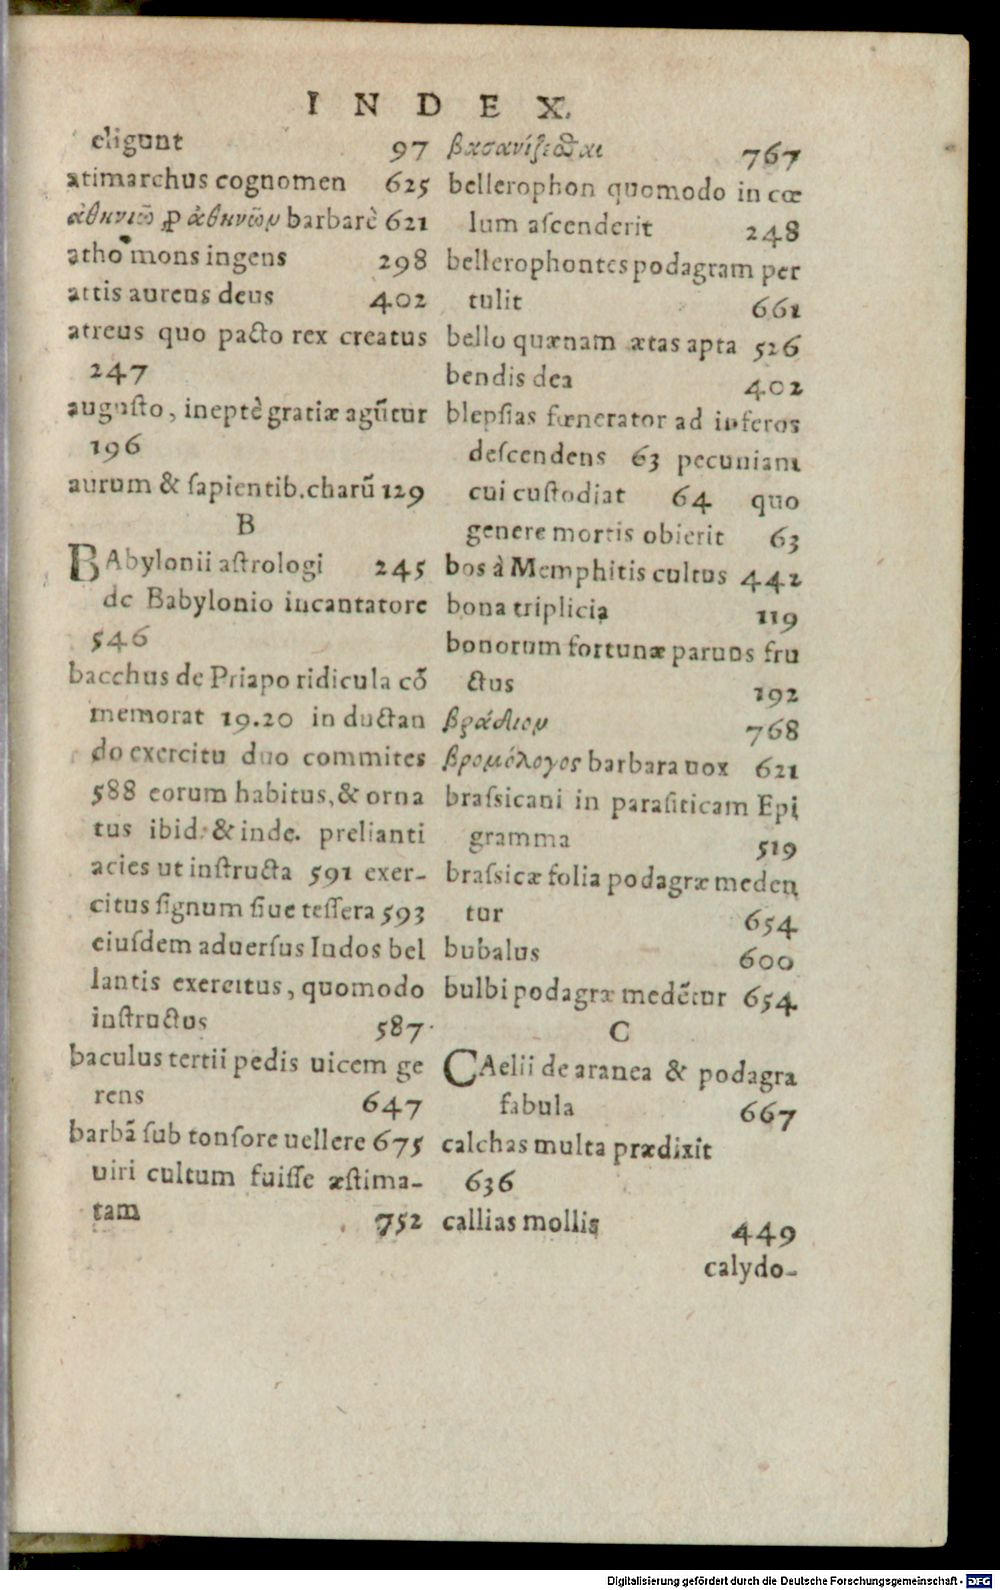 INDEX.
eligunt 97
atimarchus cognomen 625
ἀθηνιῶ ꝓ ἀθηνῶμ barbarè 621
atho mons ingens 298
attis aureus deus 402
atreus quo pacto rex creatus
247
augusto, ineptè gratiæ agũtur
196
aurum & sapientib. charũ 129
B
BAbylonii astrologi 245
de Babylonio incantatore
546
bacchus de Priapo ridicula cõ
memorat 19.20 in ductan
do exercitu duo commites
588 eorum habitus, & orna
tus ibid. & inde. prelianti
acies ut instructa 591 exer-
citus signum siue tessera 593
eiusdem aduersus Indos bel
lantis exercitus, quomodo
instructus 587
baculus tertii pedis uicem ge
rens 647
barbã sub tonsore uellere 675
uiri cultum fuisse æstima-
tam 752
βασανίζεσθαι 767
bellerophon quomodo in cœ
lum ascenderit 248
bellerophontes podagram per
tulit 661
bello quænam ætas apta 526
bendis dea 402
blepsias fœnerator ad inferos
descendens 63 pecuniam
cui custodiat 64 quo
genere mortis obierit 63
bos à Memphitis cultus 442
bona triplicia 119
bonorum fortunæ paruus fru
ctus 192
768
βρομόλογος barbara uox 621
brassicani in parasiticam Epi
gramma 519
brassicæ folia podagræ meden
tur 654
bubalus 600
bulbi podagræ medẽtur 654
C
CAelii de aranea & podagra
fabula 667
calchas multa prædixit
636
callias mollis 449
calydo-
Digitalisierung gefördert durch die Deutsche Forschungsgemeinschaft - DFG